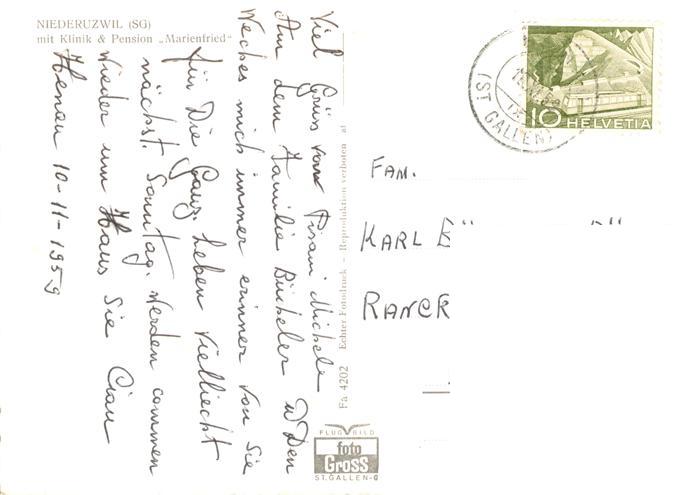 NIEDERUZWIL (SG)
mit Klinik & Pension „Marienfried"
Viel Grüs von Pisani Michele
An dem Familie Bücheler W Den
Weches mich immer erinner von Sie
für Die Ganz. Leben Vielliecht
nächst. Sonntag. Werden commen
wieder um Haus Sie Ciau
Henau 10-11-1959
Fa 4202 Echter Fotodruck - Reproduktion verboten
FLUGBILD
foto
Gross
ST. GALLEN-O
(ST GALLEN)
10 HELVETIA
FAM.
KARL B
RANCR